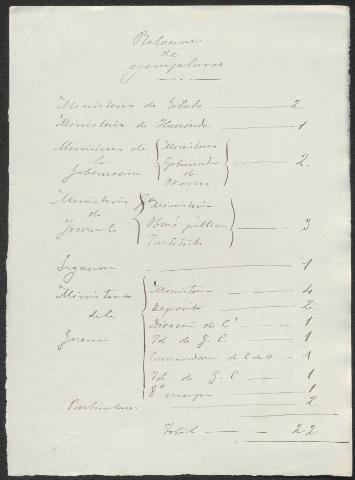 Relacion
de
ejemplares
Ministerio de Estado 2
Ministerio de Hacienda 1
Ministerio de la Gobernacion { Ministerio Gobernador de Orense } 2
Ministerio de Fomento { Ministerio Obras públicas Instituto } 3
1
Ministerio de la Guerra { Ministerio 4
Deposito 2
Direccion de C. 1
Id de G. C 1
Comandancia 1
Id de G. C 1
8º cuerpo 1
Particulares 2
Total 22